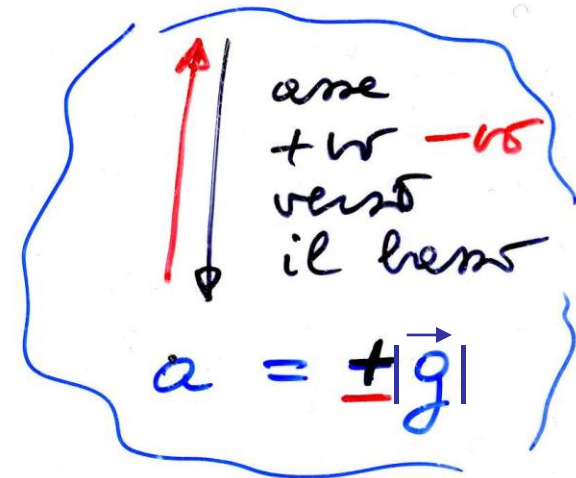 asse
+vo -vo
verso
il basso
a = ±|g⃗|